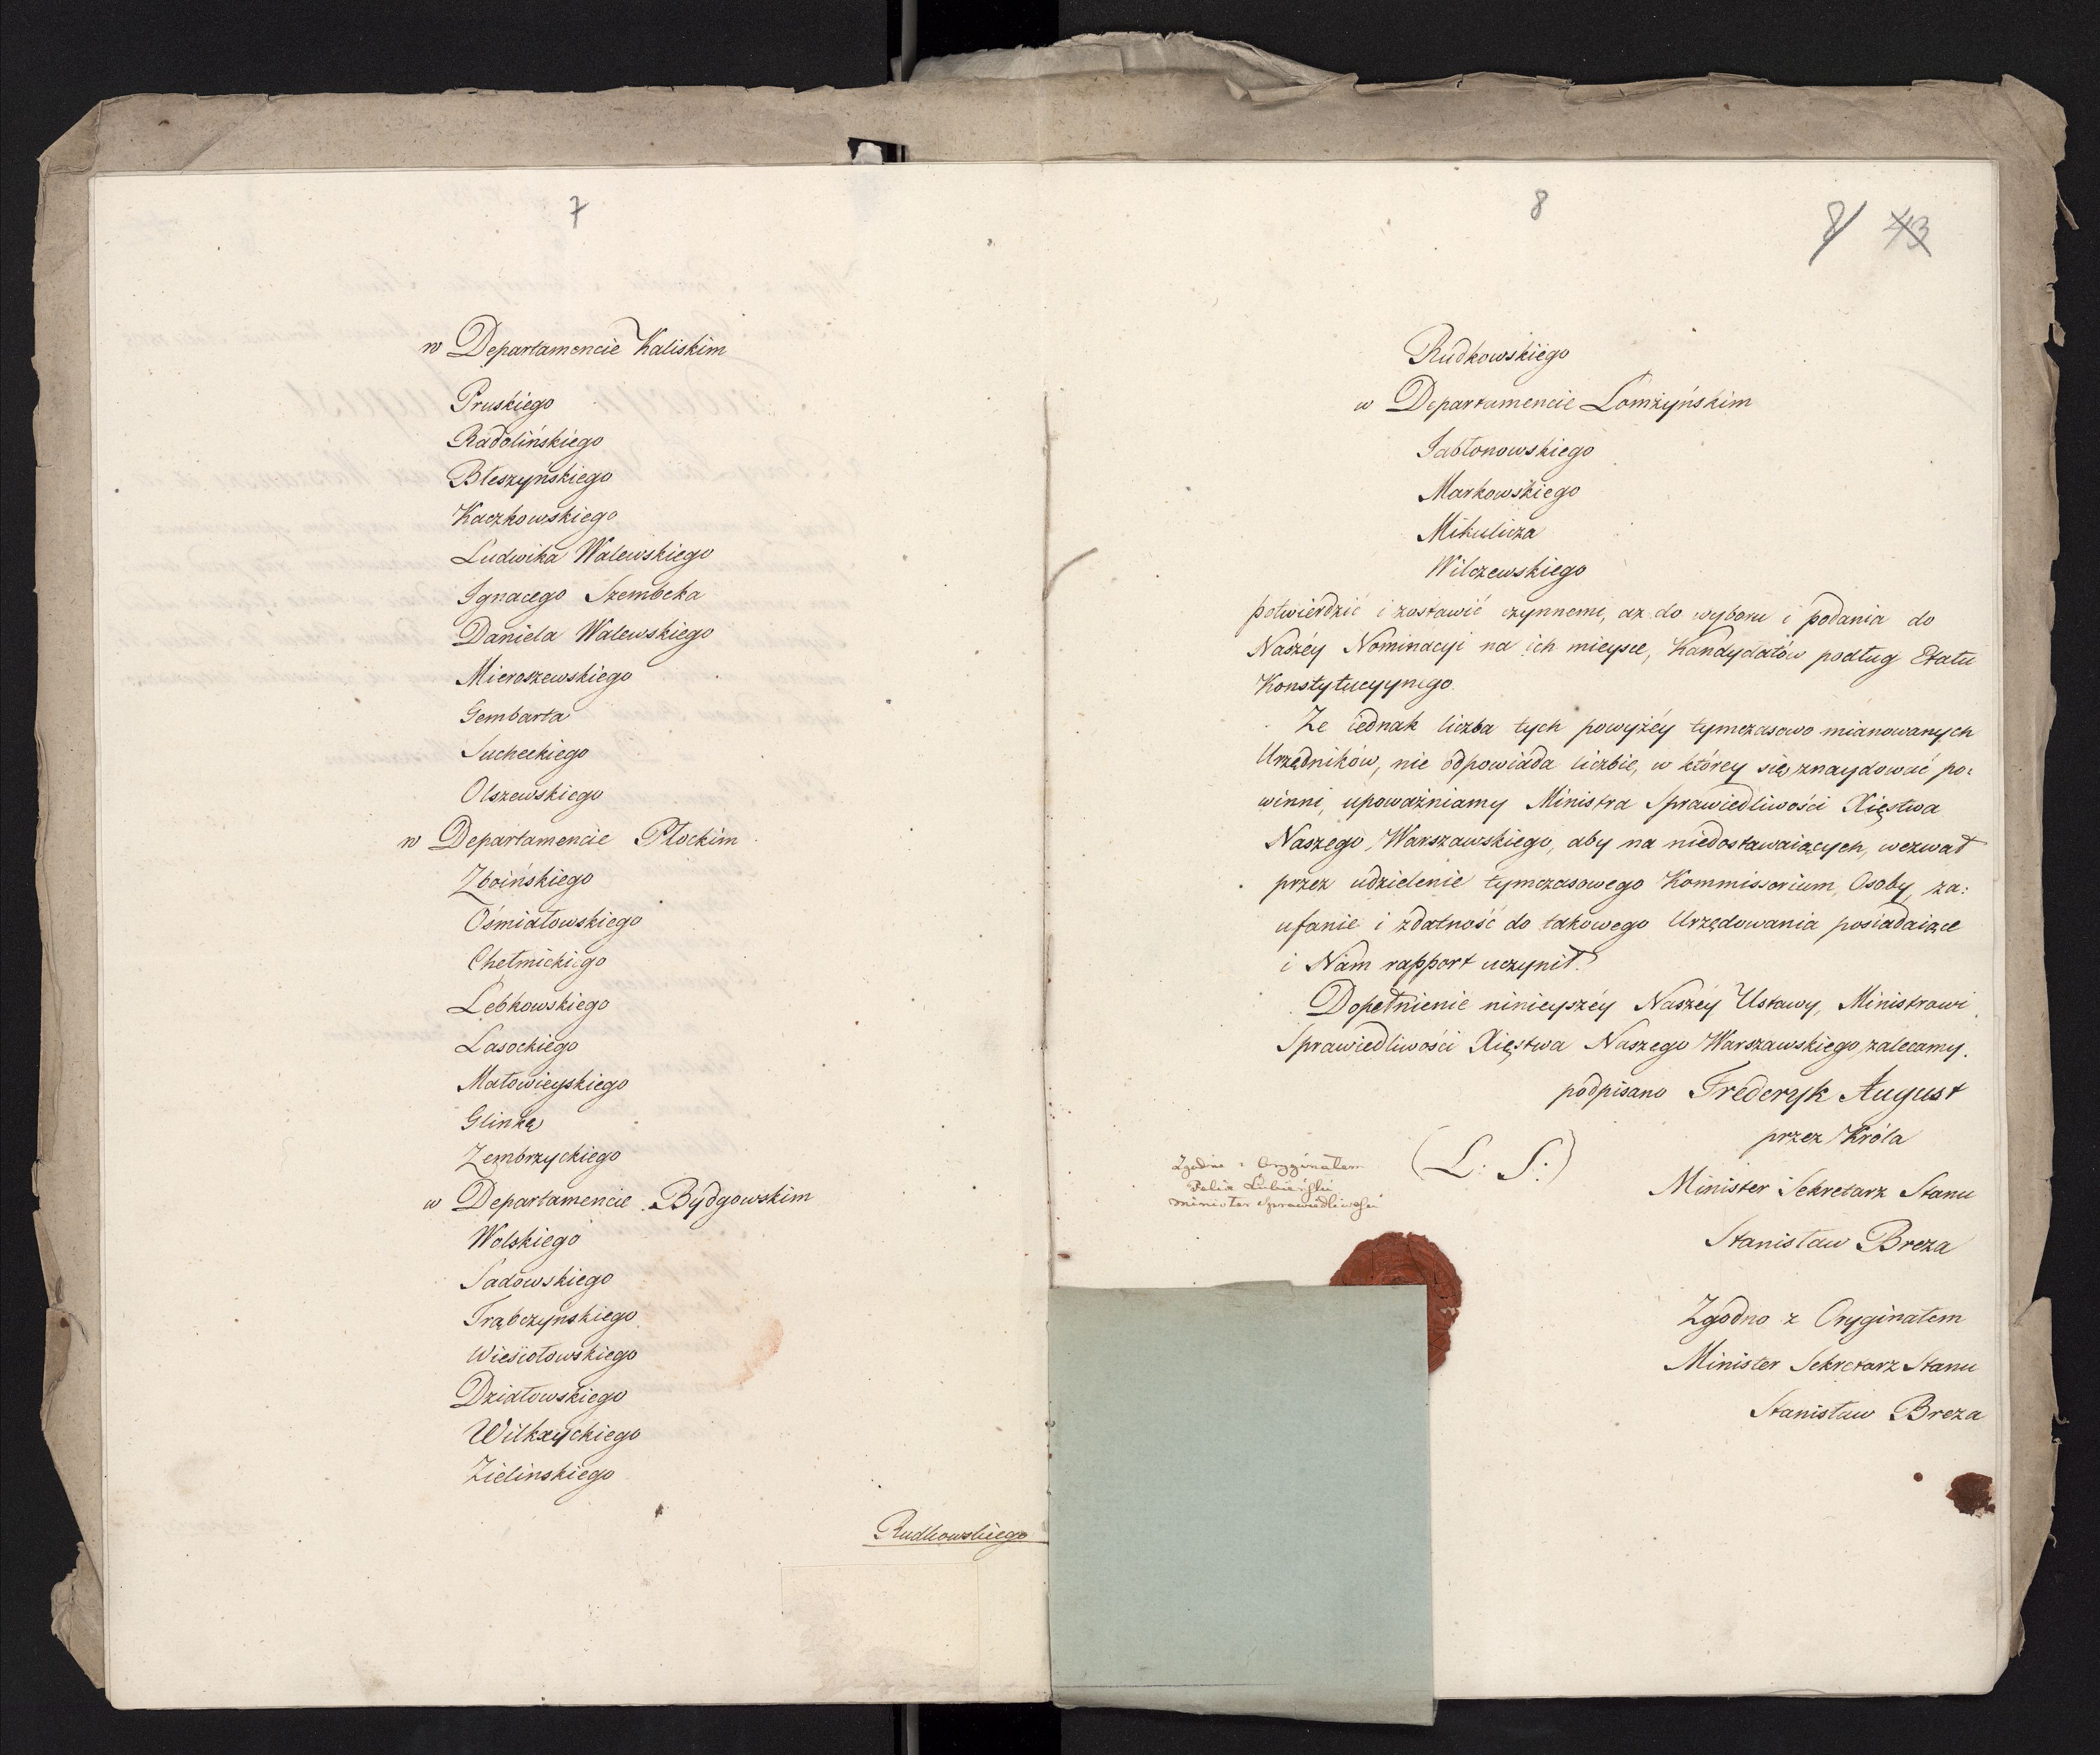 7
w Departamencie Kaliskim
Pruskiego
Radolińskiego
Błeszyńskiego
Kaczkowskiego
Ludwika Walewskiego
Ignacego Szembeka
Daniela Walewskiego
Mieroszewskiego
Gembarta
Sucheckiego
Olszewskiego
w Departamencie Płockim
Zboińskiego
Ośmiałowskiego
Chełmickiego
Łebkowskiego
Lasockiego
Małowieyskiego
Glinkę
Zembrzyckiego
w Departamencie Bydgowskim
Wolskiego
Sadowskiego
Trąbczyńskiego
Wiesiołowskiego
Działowskiego
Wilkxyckiego
Zielinskiego
Rudkowskiego
8
8/ 43
Rudkowskiego
w Departamencie Łomżyńskim
Jabłonowskiego
Markowskiego
Mikulicza
Wilczewskiego
potwierdzić i zostawić czynnemi, aż do wyboru i podania do
Naszéy Nominacyi na ich mieysce, Kandydatów podług Etatu
Konstytucyynego.
Że iednak liczba tych powyżéy tymczasowo mianowanych
Urzędników, nie odpowiada liczbie, w któréy się znaydować po:
winni, upoważniamy Ministra Sprawiedliwości Xięstwa
Naszego Warszawskiego, aby na niedostawaiących, wezwał
przez udzielenie tymczasowego Kommissorium, Osoby, za:
ufanie i zdatność do takowego Urzędowania posiadaiące
i Nam rapport uczynił.
Dopełnienie ninieyszéy Naszéy Ustawy, Ministrowi
Sprawiedliwości Xięstwa Naszego Warszawskiego, zalecamy.
podpisano Fréderyk August
przez Króla
(L: S:)
Minister Sekretarz Stanu
Stanisław Breza
Zgodno z Oryginałem
Felix Łubieński
Minister Sprawiedliwości
Zgodno z Oryginałem
Minister Sekretarz Stanu
Stanisław Breza